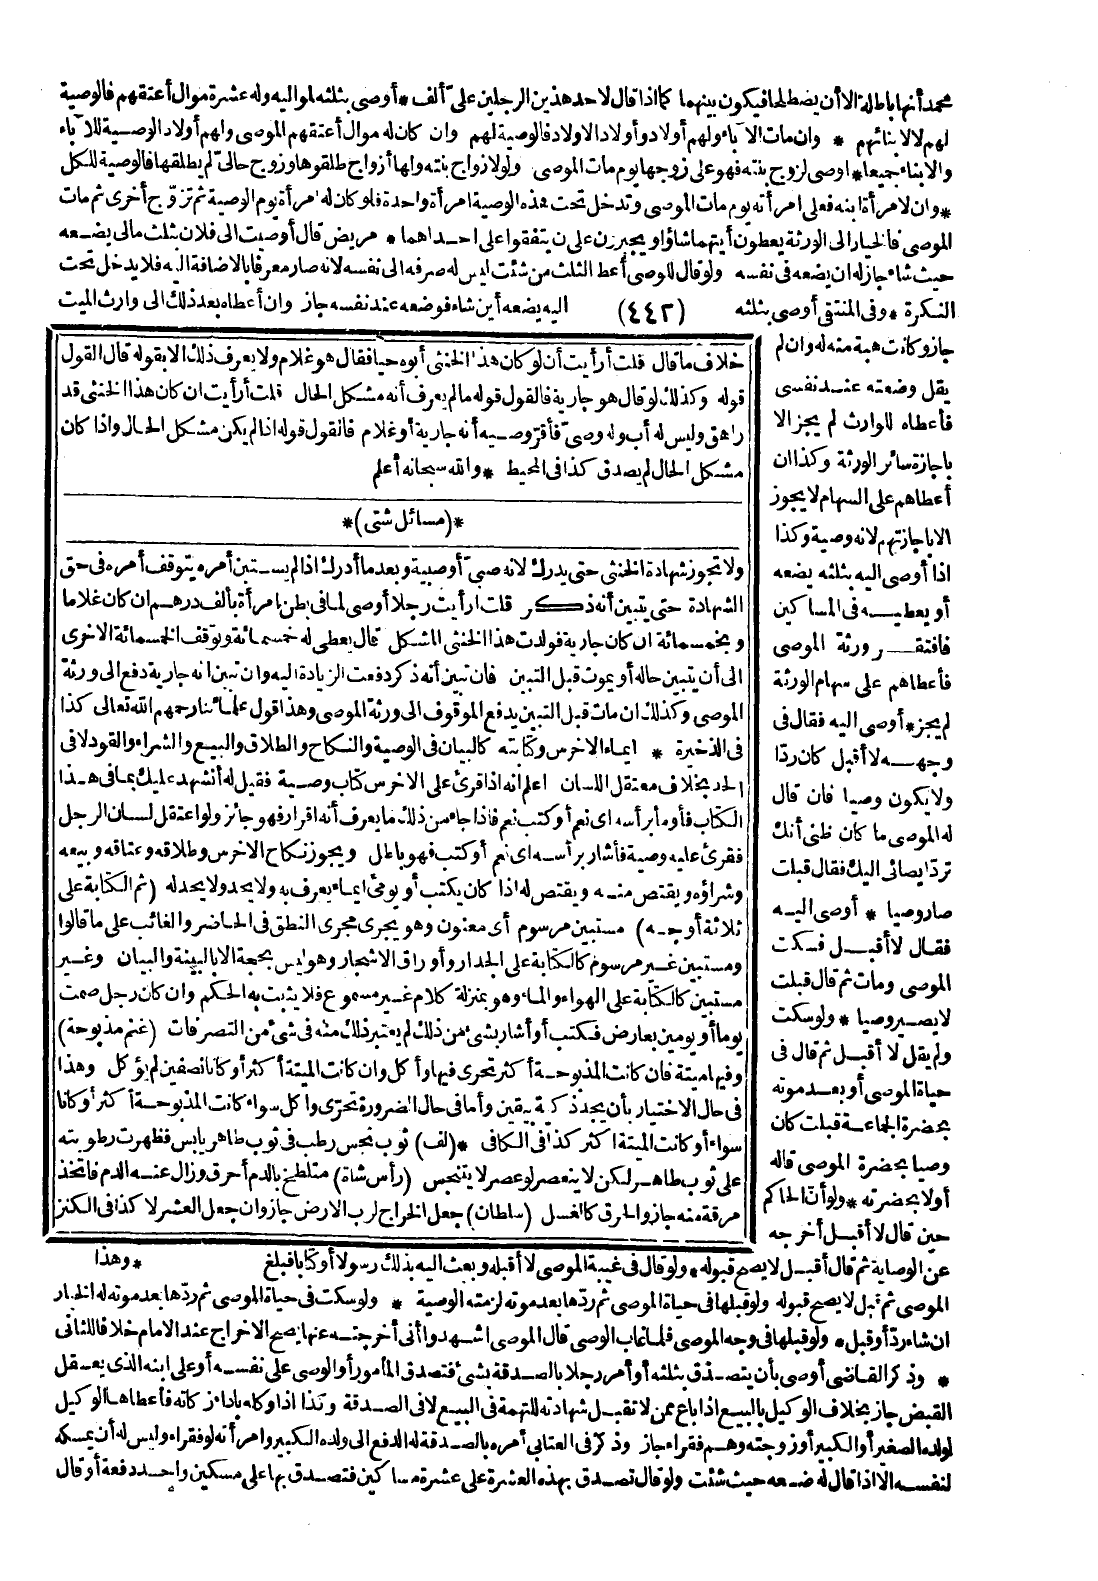 محمد أنها باطلة الا أن يصطلحا فيكون بينهما كما اذا قال لاحد هذين الرجلين على ألف * أوصى بثلثه لمواليه وله عشرة موال أعتقهم فالوصية
لهم لا لابنائهم * وان مات الآباء ولهم أولاد وأولاد الاولاد فالوصية لهم وان كان له موال أعتقهم الموصى ولهم أولاد الوصية للآباء
والابناء جميعا * اوصى لزوج بنته فهو على زوجها يوم مات الموصى ولو لازواج بنته ولها أزواج طلقوها وزوج حالىّ لم يطلقها فالوصية للكل
* وان لامرأة ابنه فعلى امرأته يوم مات الموصى وتدخل تحت هذه الوصية امرأة واحدة فلو كان له امرأة يوم الوصية ثم تزوّج أخرى ثم مات
الموصى فالخيار الى الورثة يعطون أيتهما شاؤا ويجبرون على أن يتفقوا على احداهما * مريض قال أوصيت الى فلان ثلث مالى يضعه
حيث شاء جاز له ان يضعه فى نفسه ولو قال للوصى أعط الثلث من شئت ليس له صرفه الى نفسه لانه صار معرفا بالاضافة اليه فلا يدخل تحت
النكرة * وفى المنتقى أوصى بثلثه (٤٤٢) اليه يضعه أين شاء فوضعه عند نفسه جاز وان أعطاه بعد ذلك الى وارث الميت
جاز وكانت هبة منه له وان لم
يقل وضعته عند نفسى
فأعطاه للوارث لم يجز الا
باجازة سائر الورثة وكذا ان
أعطاهم على السهام لا يجوز
الا باجازتهم لانه وصية وكذا
اذا أوصى اليه بثلثه يضعه
أو يعطيه فى المساكين
فافتقر ورثة الموصى
فأعطاهم على سهام الورثة
لم يجز * أوصى اليه فقال فى
وجهه لا أقبل كان ردّا
ولا يكون وصيا فان قال
له الموصى ما كان ظنى أنك
تردّ ايصائى اليك فقال قبلت
صار وصيا * أوصى اليه
فقال لا أقبل فسكت
الموصى ومات ثم قال قبلت
لا يصير وصيا * ولو سكت
ولم يقل لا أقبل ثم قال فى
حياة الموصى أو بعد موته
بحضرة الجماعة قبلت كان
وصيا بحضرة الموصى قاله
أولا بحضرته * ولو أن الحاكم
حين قال لا أقبل أخرجه
خلاف ما قال قلت أرأيت أن لو كان هذا الخنثى أبوه حيا فقال هو غلام ولا يعرف ذلك الا بقوله قال القول
قوله وكذلك لو قال هو جارية فالقول قوله ما لم يعرف أنه مشكل الحال قلت أرأيت ان كان هذا الخنثى قد
راهق وليس له أب وله وصىّ فأقرّ وصيه أنه جارية أو غلام فالقول قوله اذا لم يكن مشكل الحال واذا كان
مشكل الحال لم يصدق كذا فى المحيط * والله سبحانه أعلم
*(مسائل شتى)*
ولا تجوز شهادة الخنثى حتى يدرك لانه صبىّ أو صبية وبعد ما أدرك اذا لم يستبن أمره يتوقف أمره فى حق
الشهادة حتى يتبين أنه ذكر قلت ارأيت رجلا أوصى لما فى بطن امرأة بألف درهم ان كان غلاما
وبخمسمائة ان كان جارية فولدت هذا الخنثى المشكل قال يعطى له خمسمائة وتوقف الخمسمائة الاخرى
الى أن يتبين حاله أو يموت قبل التبين فان تبين أنه ذكر دفعت الزيادة اليه وان تبين انه جارية دفع الى ورثة
الموصى وكذلك ان مات قبل التبين يدفع الموقوف الى ورثة الموصى وهذا قول علمائنا رحمهم الله تعالى كذا
فى الذخيرة * ايماء الاخرس وكتابته كالبيان فى الوصية والنكاح والطلاق والبيع والشراء والقود لا فى
الحد بخلاف معتقل اللسان اعلم انه اذا قرئ على الاخرس كتاب وصية فقيل له أنشهد عليك بما فى هذا
الكتاب فأومأ برأسه اى نعم أو كتب نعم فاذا جاء من ذلك ما يعرف أنه اقرار فهو جائز ولو اعتقل لسان الرجل
فقرئ عليه وصية فأشار برأسه اى نعم أو كتب فهو باطل ويجوز نكاح الاخرس وطلاقه وعتاقه وبيعه
وشراؤه ويقتص منه ويقتص له اذا كان يكتب أو يومئ ايماء يعرف به ولا يحد ولا يحد له (ثم الكتابة على
ثلاثة أوجه) مستبين مرسوم أى معنون وهو يجرى مجرى النطق فى الحاضر والغائب على ما قالوا
ومستبين غير مرسوم كالكتابة على الجدار وأوراق الاشجار وهو ليس بحجة الا بالبينة والبيان وغير
مستبين كالكتابة على الهواء والماء وهو بمنزلة كلام غير مسموع فلا يثبت به الحكم وان كان رجل صمت
يوما أو يومين بعارض فكتب أو أشار بشئ من ذلك لم يعتبر ذلك منه فى شئ من التصرفات (غنم مذبوحة)
وفيها ميتة فان كانت المذبوحة أكثر تحرى فيها وأكل وان كانت الميتة أكثر أو كانا نصفين لم يؤكل وهذا
فى حال الاختيار بأن يجد ذكية بيقين وأما فى حال الضرورة تحرّى واكل سواء كانت المذبوحة أكثر أو كانا
سواء أو كانت الميتة اكثر كذا فى الكافى * (لف) ثوب نجس رطب فى ثوب طاهر يابس فظهرت رطوبته
على ثوب طاهر لكن لا ينعصر لو عصر لا يتنجس (رأس شاة) متلطخ بالدم أحرق وزال عنه الدم فاتخذ
مرقة منه جاز والحرق كالغسل (سلطان) جعل الخراج لرب الارض جاز وان جعل العشر لا كذا فى الكنز
* وهذا
عن الوصاية ثم قال أقبل لا يصح قبوله * ولو قال فى غيبة الموصى لا أقبله وبعث اليه بذلك رسولا أو كتابا فبلغ
الموصى ثم قبل لا يصح قبوله ولو قبلها فى حياة الموصى ثم ردّها بعد موته لزمته الوصية * ولو سكت فى حياة الموصى ثم ردّها بعد موته له الخيار
ان شاء ردّ أو قبل * ولو قبلها فى وجه الموصى فلما غاب الوصى قال الموصى اشهدوا أنى أخرجته عنها يصح الاخراج عند الامام خلافا للثانى
* وذكر القاضى أوصى بأن يتصدّق بثلثه أو أمر رجلا بالصدقة بشئ فتصدق المأمور أو الوصى على نفسه أو على ابنه الذى يعقل
القبض جاز بخلاف الوكيل بالبيع اذا باع ممن لا تقبل شهادته للتهمة فى البيع لا فى الصدقة وكذا اذا وكله باداء زكاته فأعطاها الوكيل
لولده الصغير أو الكبير أو زوجته وهم فقراء جاز وذكر فى العتابى أمره بالصدقة له الدفع الى ولده الكبير وامرأته لو فقراء وليس له أن يمسكه
لنفسه الا اذا قال له ضعه حيث شئت ولو قال تصدق بهذه العشرة على عشرة مساكين فتصدق بها على مسكين واحد دفعة أو قال